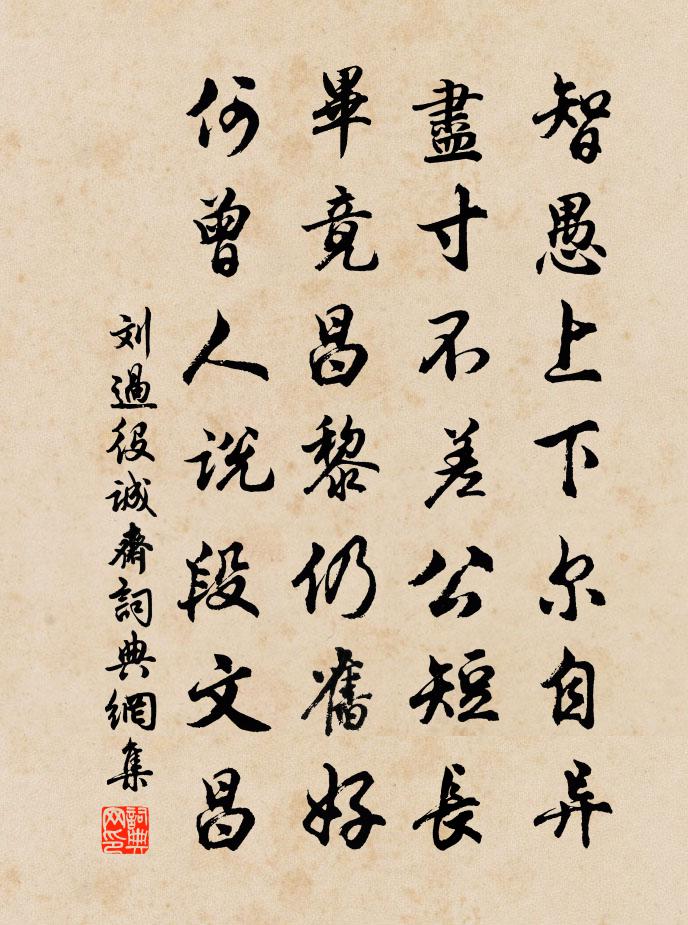 智愚上下尔自异
盡寸不差公短長
畢竟昌黎仍舊好
何曾人說段文昌
刘過役誠齋詞典網集
詞典网印